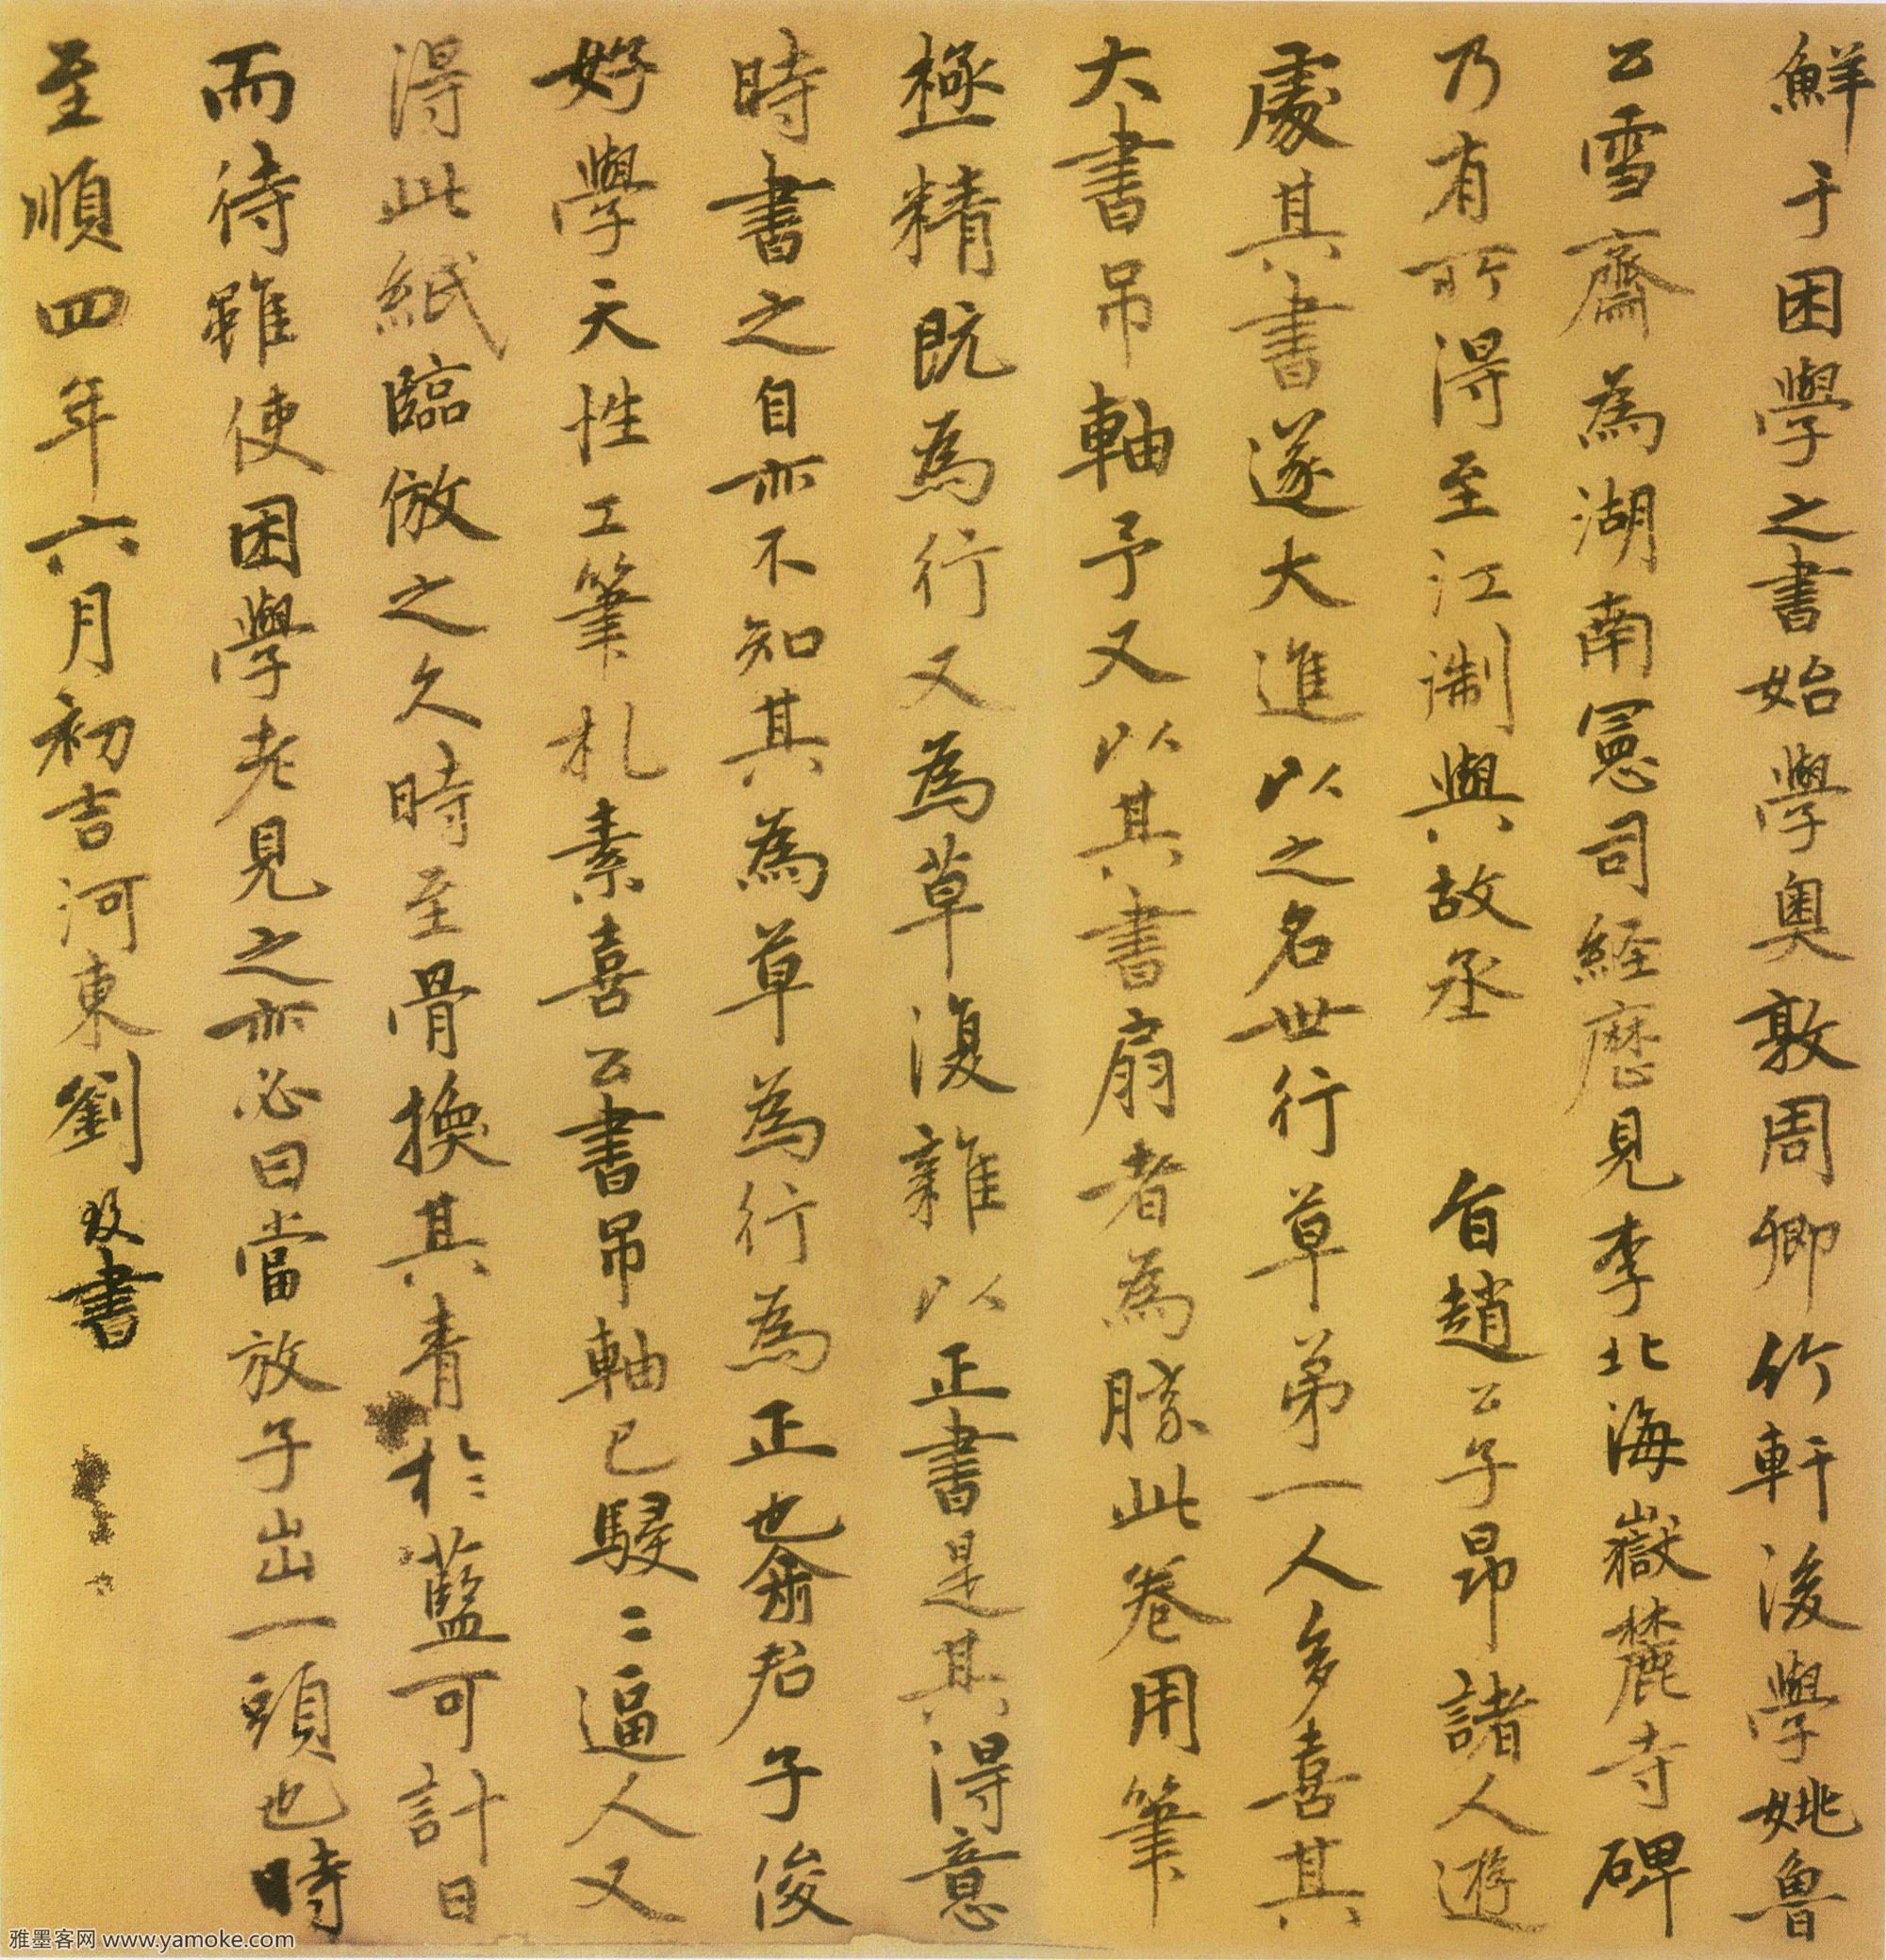 鮮于困學之書始學奧敦周卿竹軒後學姚魯
公雪齋為湖南憲司經歷見李北海嶽麓寺碑
乃有所得至江淛與故丞 旨趙公子昂諸人遊
處其書遂大進以之名世行草弟一人多喜其
大書吊軸予又以其書扇者為勝此卷用筆
極精既為行又為草復雜以正書是其得意
時書之自亦不知其為草為行為正也俞君子俊
好學天性工筆札素喜公書吊軸已駸二逼人又
得此紙臨倣之久時至骨換其青於藍可計日
而待雖使困學老見之亦必曰當放子出一頭也時
至順四年六月初吉河東劉致書
雅墨客网 www.yamoke.com